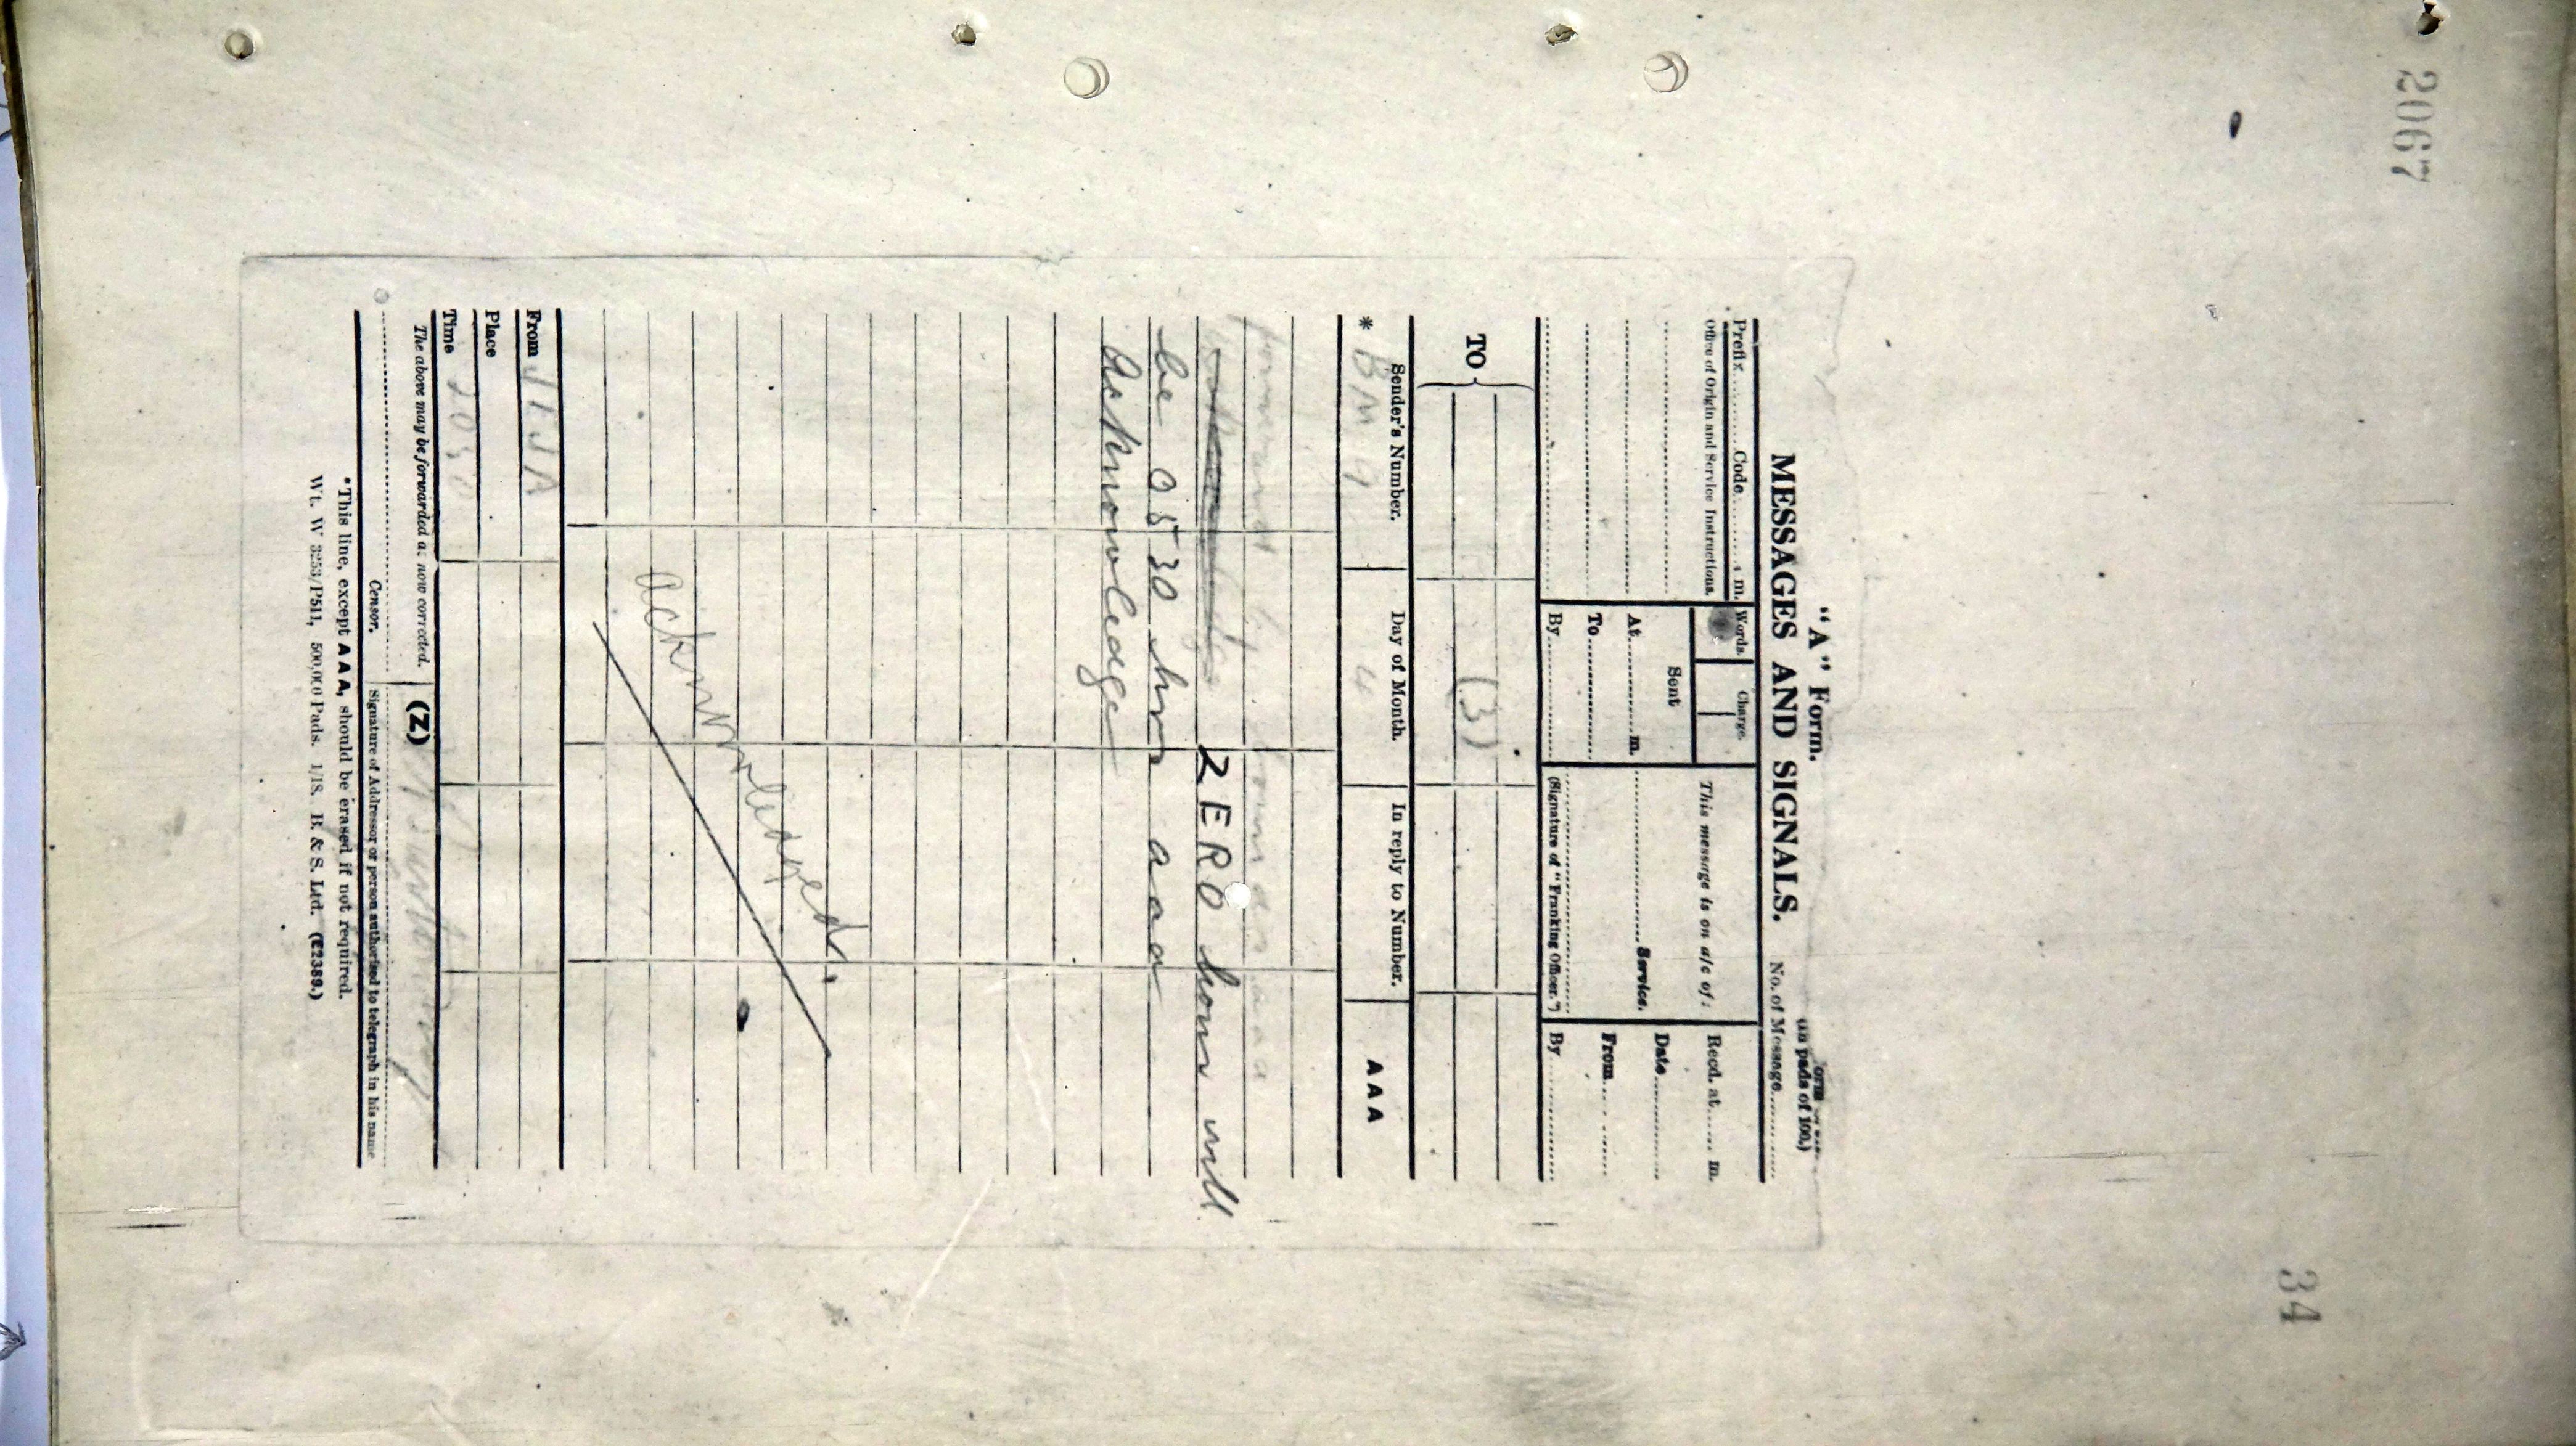 2067
34
"A" Form.
MESSAGES AND SIGNALS.
(in pads of 100.)
No. of Message............
Prefix.........Code.........m.
Words.
Charge.
This message is on a/c of:
Recd. at...... m.
Office of Origin and Service Instructions.
Sent
Date............
At............m.
............Service.
From............
To............
By............
(Signature of "Franking Officer.")
By............
TO
(3)
Sender's Number.
Day of Month.
In reply to Number.
AAA
* BM 9
4
forward
aaa
ZERO hour will
be 0530 hrs aaa
Acknowledge
Acknowledged.
From JEJA
Place
Time 2030
The above may be forwarded as now corrected.
(Z)
Censor.
Signature of Addressor or person authorised to telegraph in his name
*This line, except AAA, should be erased if not required.
Wt. W 3253/P511, 500,000 Pads. 1/18. B. & S. Ltd. (E2389.)